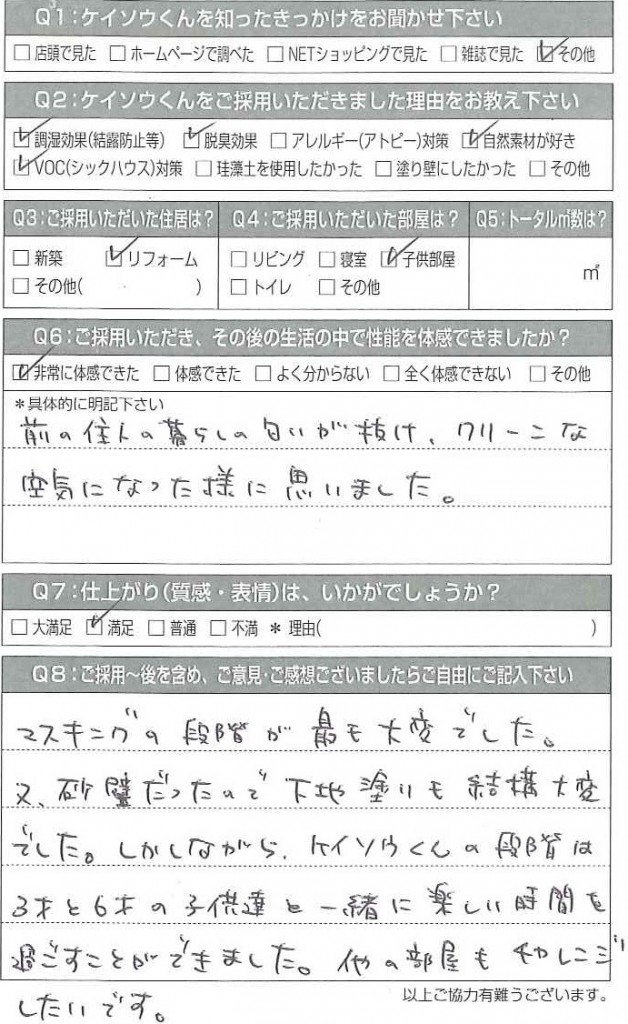 Q1:ケイソウくんを知ったきっかけをお聞かせ下さい
□店頭で見た □ホームページで調べた □NETショッピングで見た □雑誌で見た ☑その他
Q2:ケイソウくんをご採用いただきました理由をお教え下さい
☑調湿効果(結露防止等) ☑脱臭効果 □アレルギー(アトピー)対策 ☑自然素材が好き
☑VOC(シックハウス)対策 □珪藻土を使用したかった □塗り壁にしたかった □その他
Q3:ご採用いただいた住居は? Q4:ご採用いただいた部屋は? Q5:トータル㎡数は?
□新築 ☑リフォーム □リビング □寝室 ☑子供部屋 ㎡
□その他( ) □トイレ □その他
Q6:ご採用いただき、その後の生活の中で性能を体感できましたか?
☑非常に体感できた □体感できた □よく分からない □全く体感できない □その他
*具体的に明記下さい
前の住人の暮らしの匂いが抜け、クリーンな
空気になった様に思いました。
Q7:仕上がり(質感・表情)は、いかがでしょうか?
□大満足 ☑満足 □普通 □不満 *理由( )
Q8:ご採用～後を含め、ご意見・ご感想ございましたらご自由にご記入下さい
マスキングの段階が最も大変でした。
又、砂壁だったので下地塗りも結構大変
でした。しかしながら、ケイソウくんの段階は
3才と6才の子供達と一緒に楽しい時間を
過ごすことができました。他の部屋もチャレンジ
したいです。
以上ご協力有難うございます。